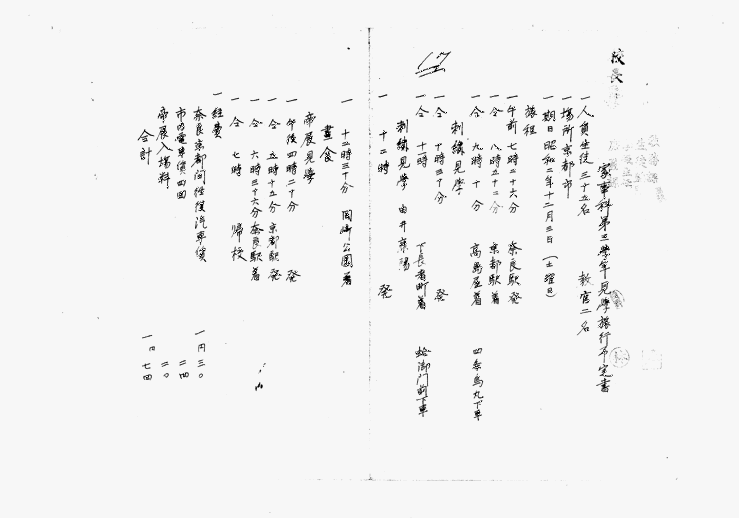 校長
家事科第三學年見學旅行予定書
一 人員生徒 三十五名 教官二名
一 場所 京都市
一 期日 昭和二年十二月三日 (土曜日)
旅程
一 午前 七時二十六分 奈良駅発
一 仝 八時五十二分 京都駅着
一 仝 九時十分 高島屋着 四条烏丸下車
刺繍見學
一 仝 十時三十分 発
一 仝 十一時 下長者町着 蛤御門前下車
刺繍見學
一 十二時 発
一 十二時三十分 岡崎公園着
昼食
帝展見學
一 午後四時二十分 発
一 仝 五時十五分 京都駅発
一 仝 六時三十六分 奈良駅着
一 仝 七時 帰校
一 経費
奈良京都間往復汽車賃 一円三〇
市内電車賃四回 二四
帝展入場料 二〇
合計 一円七四